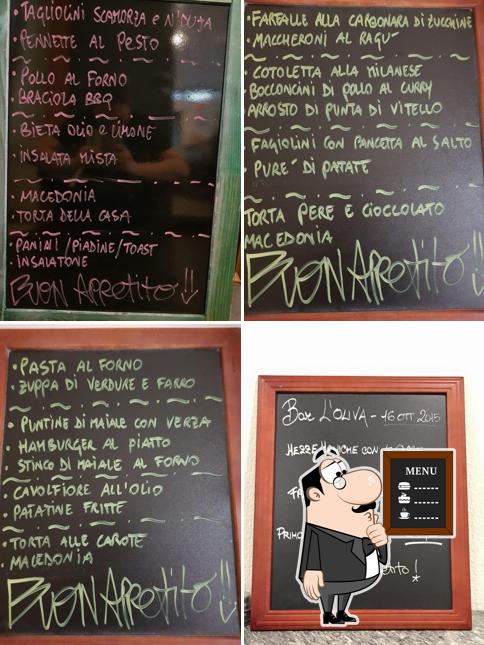 • TAGLIOLINI SCAMORZA e N'DUJA
• PENNETTE AL PESTO
• POLLO AL FORNO
• BRACIOLA BBQ
• BIETA OLIO e LIMONE
• INSALATA MISTA
• MACEDONIA
• TORTA DELLA CASA
• PANINI / PIADINE / TOAST
• INSALATONE
BUON APPETITO !!
• FARFALLE ALLA CARBONARA DI ZUCCHINE
• MACCHERONI AL RAGU'
• COTOLETTA ALLA MILANESE
• BOCCONCINI DI POLLO AL CURRY
ARROSTO DI PUNTA DI VITELLO
• FAGIOLINI CON PANCETTA AL SALTO
• PURE' DI PATATE
TORTA PERE E CIOCCOLATO
MACEDONIA
BUON APPETITO !!
• PASTA AL FORNO
• ZUPPA DI VERDURE E FARRO
• PUNTINE DI MAIALE CON VERZA
• HAMBURGER AL PIATTO
• STINCO DI MAIALE AL FORNO
• CAVOLFIORE ALL'OLIO
• PATATINE FRITTE
• TORTA ALLE CAROTE
• MACEDONIA
BUON APPETITO !!
Bar L'OLIVA - 16 OTT 2015
MEZZE MANICHE CON
MENU